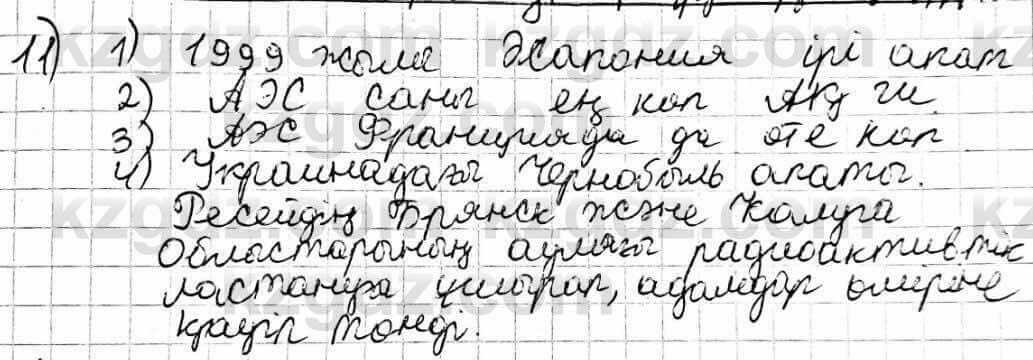 11) 1) 1999 жылы Жапония ірі апат
2) АЭС саны ең көп АҚШ
3) АЭС Францияда да өте көп
4) Украинадағы Чернобыль апаты.
Ресейдің Брянск және Калуга
Областарының аумағы радиоактивтік
ластануға ұшырап, адамдар өміріне
қауіп төнді.